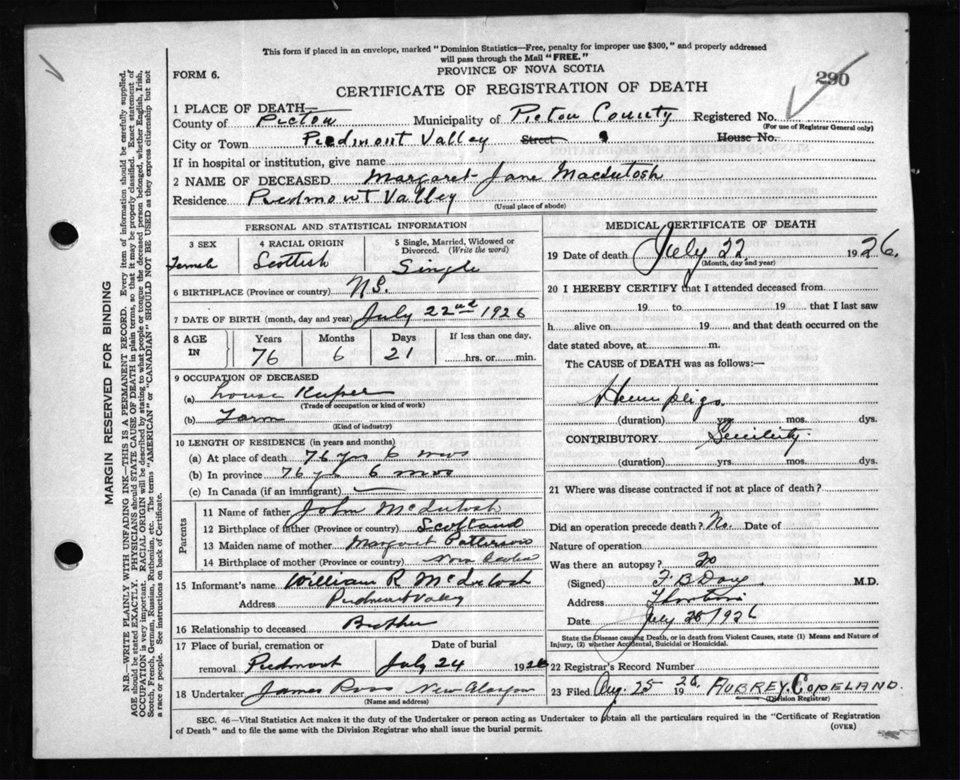 This form if placed in an envelope, marked "Dominion Statistics—Free, penalty for improper use $300," and properly addressed
will pass through the Mail "FREE."
PROVINCE OF NOVA SCOTIA
FORM 6.
290
CERTIFICATE OF REGISTRATION OF DEATH
1 PLACE OF DEATH—
County of Pictou Municipality of Pictou County Registered No.
(For use of Registrar General only)
City or Town Piedmont Valley Street House No.
If in hospital or institution, give name
2 NAME OF DECEASED Margaret Jane MacIntosh
Residence Piedmont Valley
(Usual place of abode)
PERSONAL AND STATISTICAL INFORMATION
3 SEX 4 RACIAL ORIGIN 5 Single, Married, Widowed or
Divorced. (Write the word)
Female Scottish Single
6 BIRTHPLACE (Province or country) N.S.
7 DATE OF BIRTH (month, day and year) July 22nd 1926
8 AGE IN Years Months Days If less than one day,
76 6 21 hrs. or min.
9 OCCUPATION OF DECEASED
(a) House Keeper
(Trade of occupation or kind of work)
(b) Farm
(Kind of industry)
10 LENGTH OF RESIDENCE (in years and months)
(a) At place of death 76 yrs 6 mos
(b) In province 76 yrs 6 mos
(c) In Canada (if an immigrant) —
Parents
11 Name of father John McIntosh
12 Birthplace of father (Province or country) Scotland
13 Maiden name of mother Margaret Patterson
14 Birthplace of mother (Province or country) Nova Scotia
15 Informant's name William R McIntosh
Address Piedmont Valley
16 Relationship to deceased Brother
17 Place of burial, cremation or Date of burial
removal Piedmont July 24 1926
18 Undertaker James Ross New Glasgow
(Name and address)
MEDICAL CERTIFICATE OF DEATH
19 Date of death July 22 1926.
(Month, day and year)
20 I HEREBY CERTIFY that I attended deceased from
19 to 19 that I last saw
h alive on 19 and that death occurred on the
date stated above, at m.
The CAUSE of DEATH was as follows:—
(duration) yrs. mos. dys.
CONTRIBUTORY Senility
(duration) yrs. mos. dys.
21 Where was disease contracted if not at place of death?
Did an operation precede death? No. Date of
Nature of operation
Was there an autopsy? no
(Signed) M.D.
Address
Date July 1926
State the Disease causing Death, or in death from Violent Causes, state (1) Means and Nature of
Injury, (2) whether Accidental, Suicidal or Homicidal.
22 Registrar's Record Number
23 Filed Aug. 25 1926 AUBREY. COPELAND.
(Division Registrar)
SEC. 46—Vital Statistics Act makes it the duty of the Undertaker or person acting as Undertaker to obtain all the particulars required in the "Certificate of Registration
of Death" and to file the same with the Division Registrar who shall issue the burial permit.
(OVER)
MARGIN RESERVED FOR BINDING
N.B.—WRITE PLAINLY WITH UNFADING INK—THIS IS A PERMANENT RECORD. Every item of information should be carefully supplied.
AGE should be stated EXACTLY. PHYSICIANS should STATE CAUSE OF DEATH in plain terms, so that it may be properly classified. Exact statement of
OCCUPATION is very important. RACIAL ORIGIN will be described by stating to what people or tongue the deceased person belonged, whether English, Irish,
Scotch, French, German, Russian, Ruthenian, etc. The terms "AMERICAN" or "CANADIAN" SHOULD NOT BE USED as they express citizenship but not
a race or people. See instructions on back of Certificate.